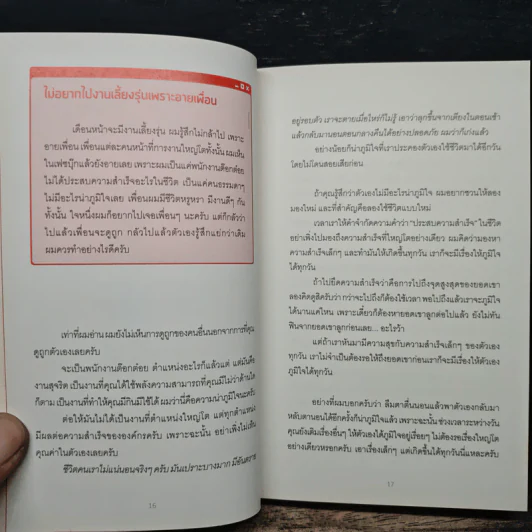 ไม่อยากไปงานเลี้ยงรุ่นเพราะอายเพื่อน
เดือนหน้าจะมีงานเลี้ยงรุ่น ผมรู้สึกไม่กล้าไป เพราะ
อายเพื่อน เพื่อนแต่ละคนหน้าที่การงานใหญ่โตทั้งนั้น ผมเห็น
ในเฟซบุ๊กแล้วยังอายเลย เพราะผมเป็นแค่พนักงานต๊อกต๋อย
ไม่ได้ประสบความสำเร็จอะไรในชีวิต เป็นแค่คนธรรมดาๆ
ไม่มีอะไรน่าภูมิใจเลย เพื่อนผมมีชีวิตหรูหรา มีงานดีๆ กัน
ทั้งนั้น ใจหนึ่งผมก็อยากไปเจอเพื่อนๆ นะครับ แต่ก็กลัวว่า
ไปแล้วเพื่อนจะดูถูก กลัวไปแล้วตัวเองรู้สึกแย่กว่าเดิม
ผมควรทำอย่างไรดีครับ
เท่าที่ผมอ่าน ผมยังไม่เห็นการดูถูกของคนอื่นนอกจากการที่คุณ
ดูถูกตัวเองเลยครับ
จะเป็นพนักงานต๊อกต๋อย ตำแหน่งอะไรก็แล้วแต่ แต่มันคือ
งานสุจริต เป็นงานที่คุณได้ใช้พลังความสามารถที่คุณมีไม่ว่าด้านใด
ก็ตาม เป็นงานที่ทำให้คุณมีกินมีใช้ได้ ผมว่านี่คือความน่าภูมิใจนะครับ
ต่อให้มันไม่ได้เป็นงานที่ตำแหน่งใหญ่โต แต่ทุกตำแหน่ง
มีผลต่อความสำเร็จขององค์กรครับ เพราะฉะนั้น อย่าเพิ่งไม่เห็น
คุณค่าในตัวเองเลยครับ
ชีวิตคนเราไม่แน่นอนจริงๆ ครับ มันเปราะบางมาก มีอันตราย
16
อยู่รอบตัว เราจะตายเมื่อไหร่ก็ไม่รู้ เอาว่าลุกขึ้นจากเตียงในตอนเช้า
แล้วกลับมานอนตอนกลางคืนได้อย่างปลอดภัย ผมว่าก็เก่งแล้ว
อย่างน้อยก็น่าภูมิใจที่เราประคองตัวเองใช้ชีวิตมาได้อีกวัน
โดยไม่โดนสอยเสียก่อน
ถ้าคุณรู้สึกว่าตัวเองไม่มีอะไรน่าภูมิใจ ผมอยากชวนให้ลอง
มองใหม่ และที่สำคัญคือลองใช้ชีวิตแบบใหม่
เวลาเราให้คำจำกัดความคำว่า “ประสบความสำเร็จ” ในชีวิต
อย่าเพิ่งไปมองถึงความสำเร็จที่ใหญ่โตอย่างเดียว ผมคิดว่ามองหา
ความสำเร็จเล็กๆ และทำมันให้เกิดขึ้นทุกวัน เราก็จะมีเรื่องให้ภูมิใจ
ได้ทุกวัน
ถ้าไปยึดความสำเร็จว่าคือการไปถึงจุดสูงสุดของยอดเขา
ลองคิดดูสิครับว่า กว่าจะไปถึงก็ต้องใช้เวลา พอไปถึงแล้วเราจะภูมิใจ
ได้นานแค่ไหน เพราะเดี๋ยวก็ต้องหายอดเขาลูกต่อไปแล้ว ยังไม่ทัน
ฟินจากยอดเขาลูกก่อนเลย... อะไรว้า
แต่ถ้าเราหันมามีความสุขกับความสำเร็จเล็กๆ ของตัวเอง
ทุกวัน เราไม่จำเป็นต้องรอให้ถึงยอดเขาก่อนเราก็จะมีเรื่องให้ตัวเอง
ภูมิใจได้ทุกวัน
อย่างที่ผมบอกครับว่า ลืมตาตื่นนอนแล้วพาตัวเองกลับมา
หลับตานอนได้อีกครั้งก็น่าภูมิใจแล้ว เพราะฉะนั้น ช่วงเวลาระหว่างวัน
คุณยังเติมเรื่องอื่นๆ ให้ตัวเองได้ภูมิใจอยู่เรื่อยๆ ไม่ต้องรอเรื่องใหญ่โต
อย่างเดียวหรอกครับ เอาเรื่องเล็กๆ แต่เกิดขึ้นได้ทุกวันนี่แหละครับ
17